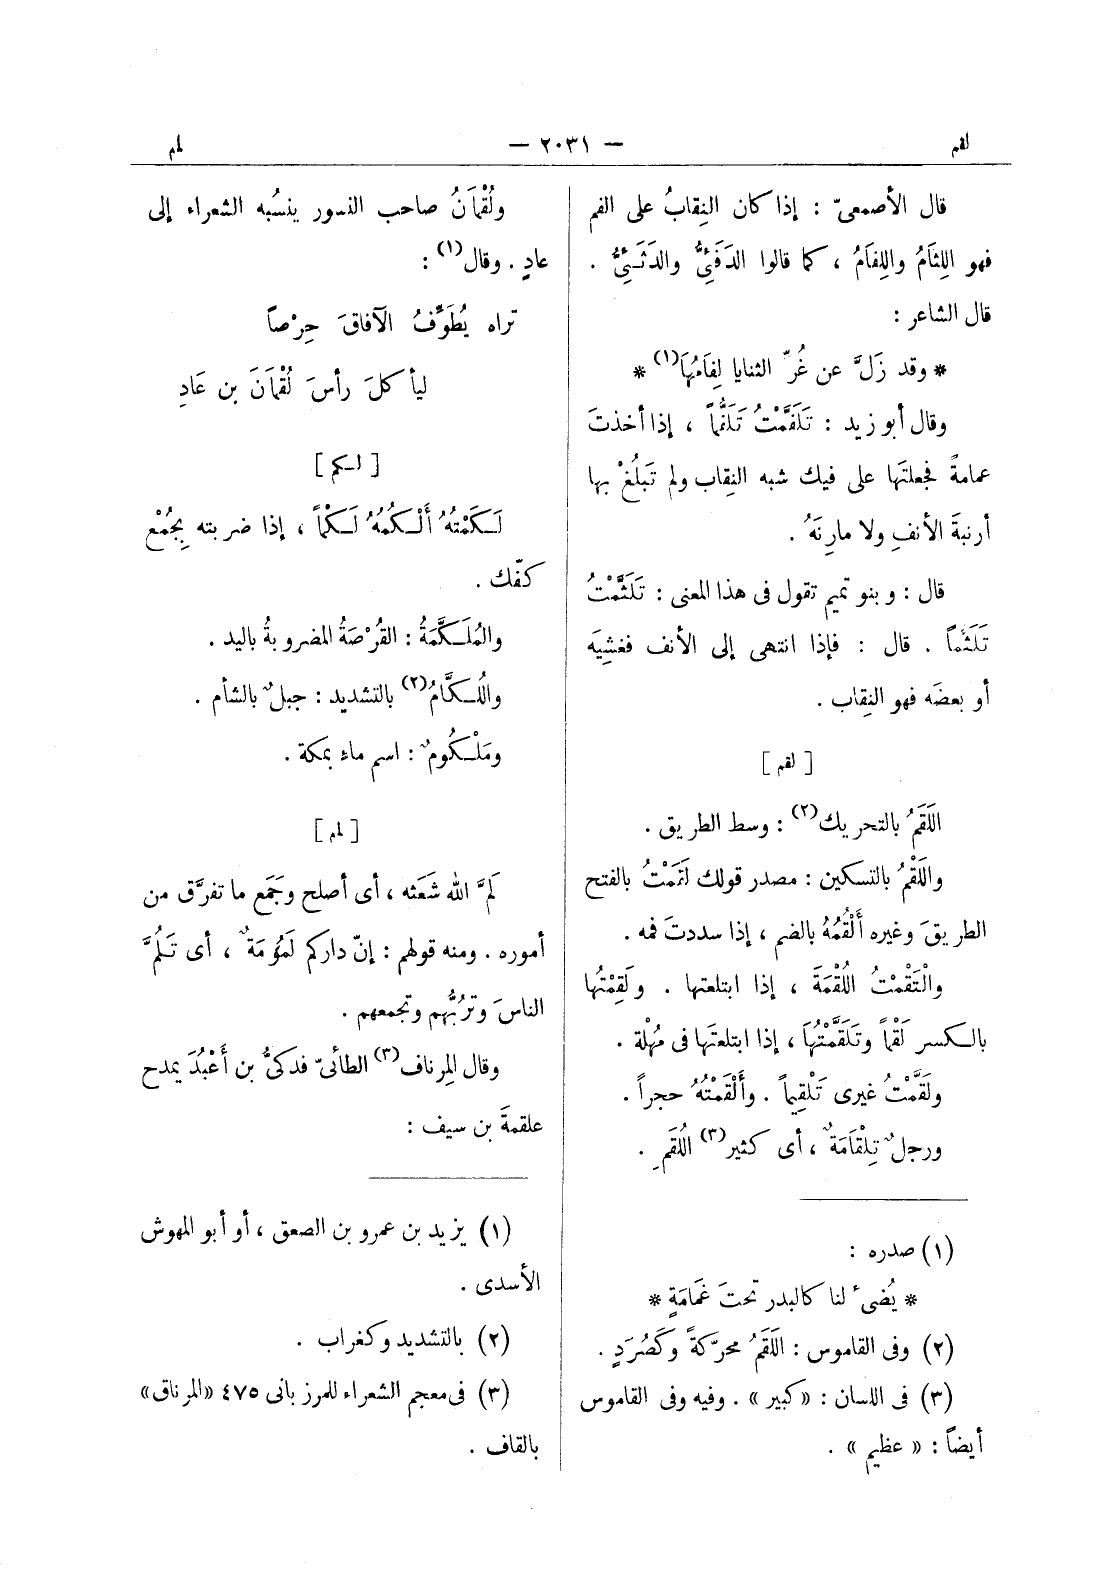 لقم
— ٢٠٣١ —
لمم
قال الأصمعىّ : إذا كان النِقابُ على الفم
فهو اللِثَامُ واللِفامُ ، كما قالوا الدَفَئِىُّ والدَثَئِىُّ .
قال الشاعر :
* وقد زَلَّ عن غُرِّ الثنايا لِفَامُهَا(١) *
وقال أبو زيد : تَلَفَّمْتُ تَلَفُّماً ، إذا أخذتَ
عمامةً فجعلتَها على فيك شبه النِقاب ولم تَبلُغْ بها
أرنبةَ الأنفِ ولا مارِنَهُ .
قال : وبنو تميم تقول فى هذا المعنى : تَلَثَّمْتُ
تَلَثُّماً . قال : فإذا انتهى إلى الأنف فغشِيَه
أو بعضَه فهو النِقاب .
[ لقم ]
اللَقَمُ بالتحريك(٢) : وسط الطريق .
واللَقْمُ بالتسكين : مصدر قولك لَقَمْتُ بالفتح
الطريقَ وغيره أَلْقُمُهُ بالضم ، إذا سددتَ فمه .
والْتَقَمْتُ اللُقْمَةَ ، إذا ابتلعتها . ولَقِمْتُها
بالكسر لَقْماً وتَلَقَّمْتُهَا ، إذا ابتلعتَها فى مُهْلة .
ولَقَّمْتُ غيرى تَلْقِيماً . وأَلْقَمْتُهُ حجراً .
ورجلٌ تِلْقَامَةٌ ، أى كثير(٣) اللُقَمِ .
(١) صدره :
* يُضىء لنا كالبدر تحتَ غَمَامَةٍ *
(٢) وفى القاموس : اللَقَمُ محرّكةً وَكَصُرَدٍ .
(٣) فى اللسان : «كبير» . وفيه وفى القاموس
أيضاً : «عظيم» .
ولُقْمَانُ صاحب النسور ينسُبه الشعراء إلى
عادٍ . وقال(١) :
تراه يُطَوِّفُ الآفاقَ حِرْصاً
ليأكلَ رأسَ لُقْمَانَ بن عَادِ
[ لكم ]
لَكَمْتُهُ أَلْكُمُهُ لَكْماً ، إذا ضربته بِجُمْعِ
كفّك .
والمُلَكَّمَةُ : القُرْصَةُ المضروبةُ باليد .
واللُكَّامُ(٢) بالتشديد : جبلٌ بالشأم .
ومَلْكُومٌ : اسم ماءٍ بمكة .
[ لمم ]
لَمَّ اللّه شَعَثه ، أى أصلح وجَمَع ما تفرَّق من
أموره . ومنه قولهم : إنّ داركم لَمُومَةٌ ، أى تَلُمُّ
الناسَ وتَرُبُّهم وتجمعهم .
وقال المِرناف(٣) الطائىّ فدكىُّ بن أَعْبُدَ يمدح
علقمةَ بن سيف :
(١) يزيد بن عمرو بن الصعق ، أو أبو المهوش
الأسدى .
(٢) بالتشديد وكغراب .
(٣) فى معجم الشعراء للمرزبانى ٤٧٥ «المرناق»
بالقاف .